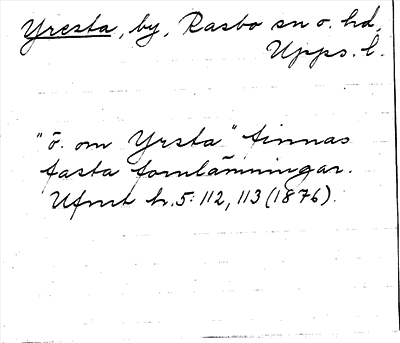 Yresta, by, Rasbo sn o. hd,
Upps. l.
"ö. om Yrsta" finnas
fasta fornlämningar.
Ufmt h. 5: 112, 113 (1876).